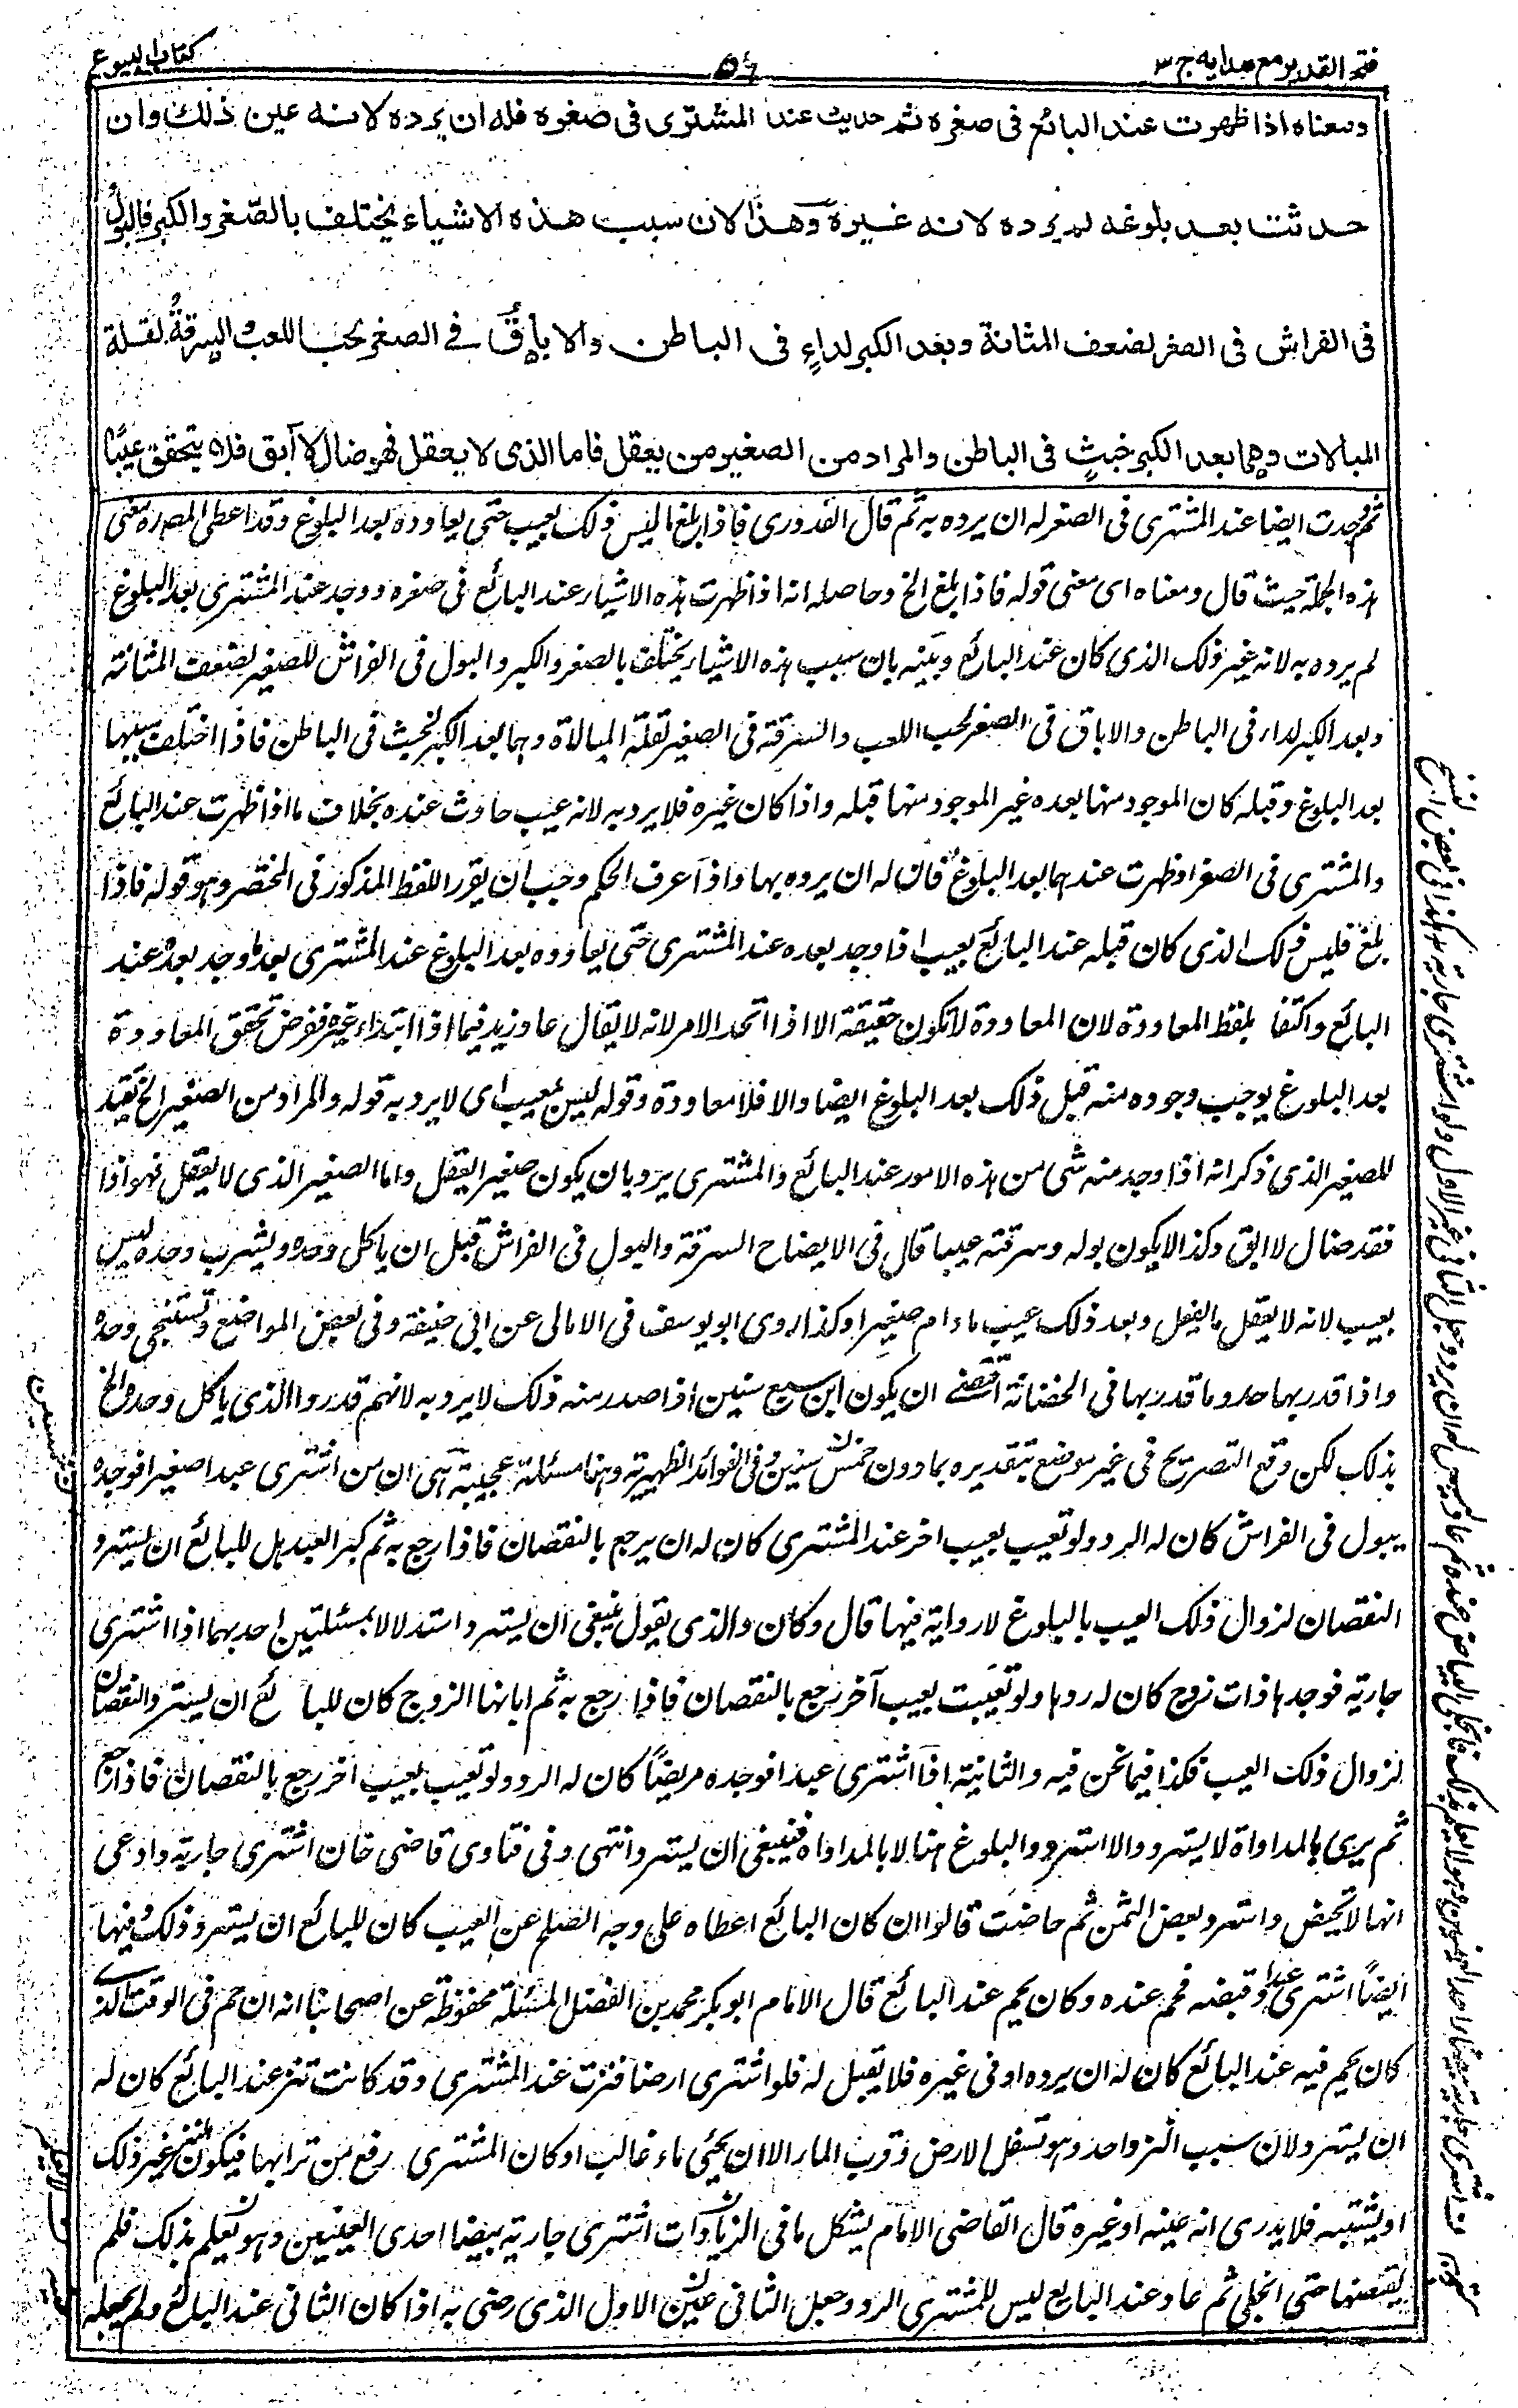 فتح القدير مع هدايه ج ٣
٥٦
كتاب البيوع
ومعناه اذا ظهرت عند البائع فى صغره ثم حدثت عند المشترى فى صغره فله ان يرده لانه عين ذلك وان
حدثت بعد بلوغه لم يرده لانه غيره وهذا لان سبب هذه الاشياء يختلف بالصغر والكبر فالبول
فى الفراش فى الصغر لضعف المثانة وبعد الكبر لداءٍ فى الباطن والاباق فى الصغر لحب اللعب والسرقة لقلة
المبالات وهما بعد الكبر لخبثٍ فى الباطن والمراد من الصغير من يعقل فاما الذى لا يعقل فهو ضال لا آبق فلا يتحقق عيبًا
ثم وجدت ايضا عند المشترى فى الصغر له ان يرده به ثم قال القدورى فاذا بلغ فليس ذلك بعيب حتى يعاوده بعد البلوغ وقد اعطى المصره معنى
هذه الجملة حيث قال ومعناه اى معنى قوله فاذا بلغ الخ وحاصله انه اذا ظهرت هذه الاشياء عند البائع فى صغره ووجد عند المشترى بعد البلوغ
لم يرده به لانه غير ذلك الذى كان عند البائع وبينه بان سبب هذه الاشياء يختلف بالصغر والكبر والبول فى الفراش للصغير لضعف المثانة
وبعد الكبر لداء فى الباطن والاباق فى الصغر لحب اللعب والسرقة فى الصغير لقلة المبالاة وهما بعد الكبر لخبث فى الباطن فاذا اختلف سببها
بعد البلوغ وقبله كان الموجود منها بعده غير الموجود منها قبله واذا كان غيره فلا يرد به لانه عيب حادث عنده بخلاف ما اذا ظهرت عند البائع
والمشترى فى الصغر او ظهرت عندهما بعد البلوغ فان له ان يرده بها واذا عرف الحكم وجب ان يقرر اللفظ المذكور فى المختصر وهو قوله فاذا
بلغ فليس ذلك الذى كان قبله عند البائع بعيب اذا وجد بعده عند المشترى حتى يعاوده بعد البلوغ عند المشترى بعد ما وجد بعده عند
البائع واكتفا بلفظ المعاودة لان المعاودة لا تكون حقيقة الا اذا اتحد الامر لانه لا يقال عاد زيد فيما اذا ابتداء غيره ففرض تحقق المعاودة
بعد البلوغ يوجب وجوده منه قبل ذلك بعد البلوغ ايضا والا فلا معاودة وقوله ليس بعيب اى لا يرد به قوله والمراد من الصغير الخ تقييد
للصغير الذى ذكر انه اذا وجد منه شى من هذه الامور عند البائع والمشترى يرد بان يكون صغير العقل واما الصغير الذى لا يعقل فهو اذا
فقد ضال لا ابق وكذا لا يكون بوله وسرقته عيبا قال فى الايضاح السرقة والبول فى الفراش قبل ان ياكل وحده ويشرب وحده ليس
بعيب لانه لا يعقل ما يفعل وبعد ذلك عيب مادام صغيرا وكذا روى ابو يوسف فى الامالى عن ابى حنيفة وفى بعض المواضع ويستنجى وحده
واذا قدر بهما حد وما قدر بها فى الحضانة اقتضى ان يكون ابن سبع سنين اذا صدر منه ذلك لا يرد به لانهم قدروا الذى ياكل وحده الخ
بذلك لكن وقع التصريح فى غير موضع بتقديره بما دون خمس سنين وفى الفوائد الظهيرية وهنا مسئلة عجيبة هى ان من اشترى عبدا صغيرا فوجده
يبول فى الفراش كان له الرد ولو تعيب بعيب اخر عند المشترى كان له ان يرجع بالنقصان فاذا رجع به ثم كبر العبد هل للبائع ان يسترد
النقصان لزوال ذلك العيب بالبلوغ لا رواية فيها قال وكان والدى يقول ينبغى ان يسترد استدلالا بمسئلتين احدهما اذا اشترى
جارية فوجدها ذات زوج كان له ردها ولو تعيبت بعيب آخر رجع بالنقصان فاذا رجع به ثم ابانها الزوج كان للبائع ان يسترد النقصان
لزوال ذلك العيب فكذا فيما نحن فيه والثانية اذا اشترى عبدا فوجده مريضًا كان له الرد ولو تعيب بعيب اخر رجع بالنقصان فاذا رجع
ثم برى بالمداواة لا يسترد والا استرد والبلوغ هنا لا بالمداواه فينبغى ان يسترد انتهى وفى فتاوى قاضى خان اشترى جارية وادعى
انها لا تحيض واسترد بعض الثمن ثم حاضت قالوا ان كان البائع اعطاه على وجه الصلح عن العيب كان للبائع ان يسترد ذلك وفيها
ايضًا اشترى عبدا وقبضه فحم عنده وكان يحم عند البائع قال الامام ابو بكر محمد بن الفضل المسئلة محفوظة عن اصحابنا انه ان حم فى الوقت الذى
كان يحم فيه عند البائع كان له ان يرده او فى غيره فلا يقبل له فلو اشترى ارضا فنزت عند المشترى وقد كانت تنز عند البائع كان له
ان يسترد لان سبب النز واحد وهو تسفل الارض وقرب الماء الا ان يجيئ ماء غالب او كان المشترى رفع من ترابها فيكون النز غير ذلك
او يشتبه فلا يدرى انه عينه او غيره قال القاضى الامام يشكل ما فى الزيادات اشترى جارية بيضا احدى العينين وهو يعلم بذلك فلم
يقبضها حتى انجلى ثم عاد عند البايع ليس للمشترى الرد وجعل الثانى عين الاول الذى رضى به اذا كان الثانى عند البائع ولم يجعله